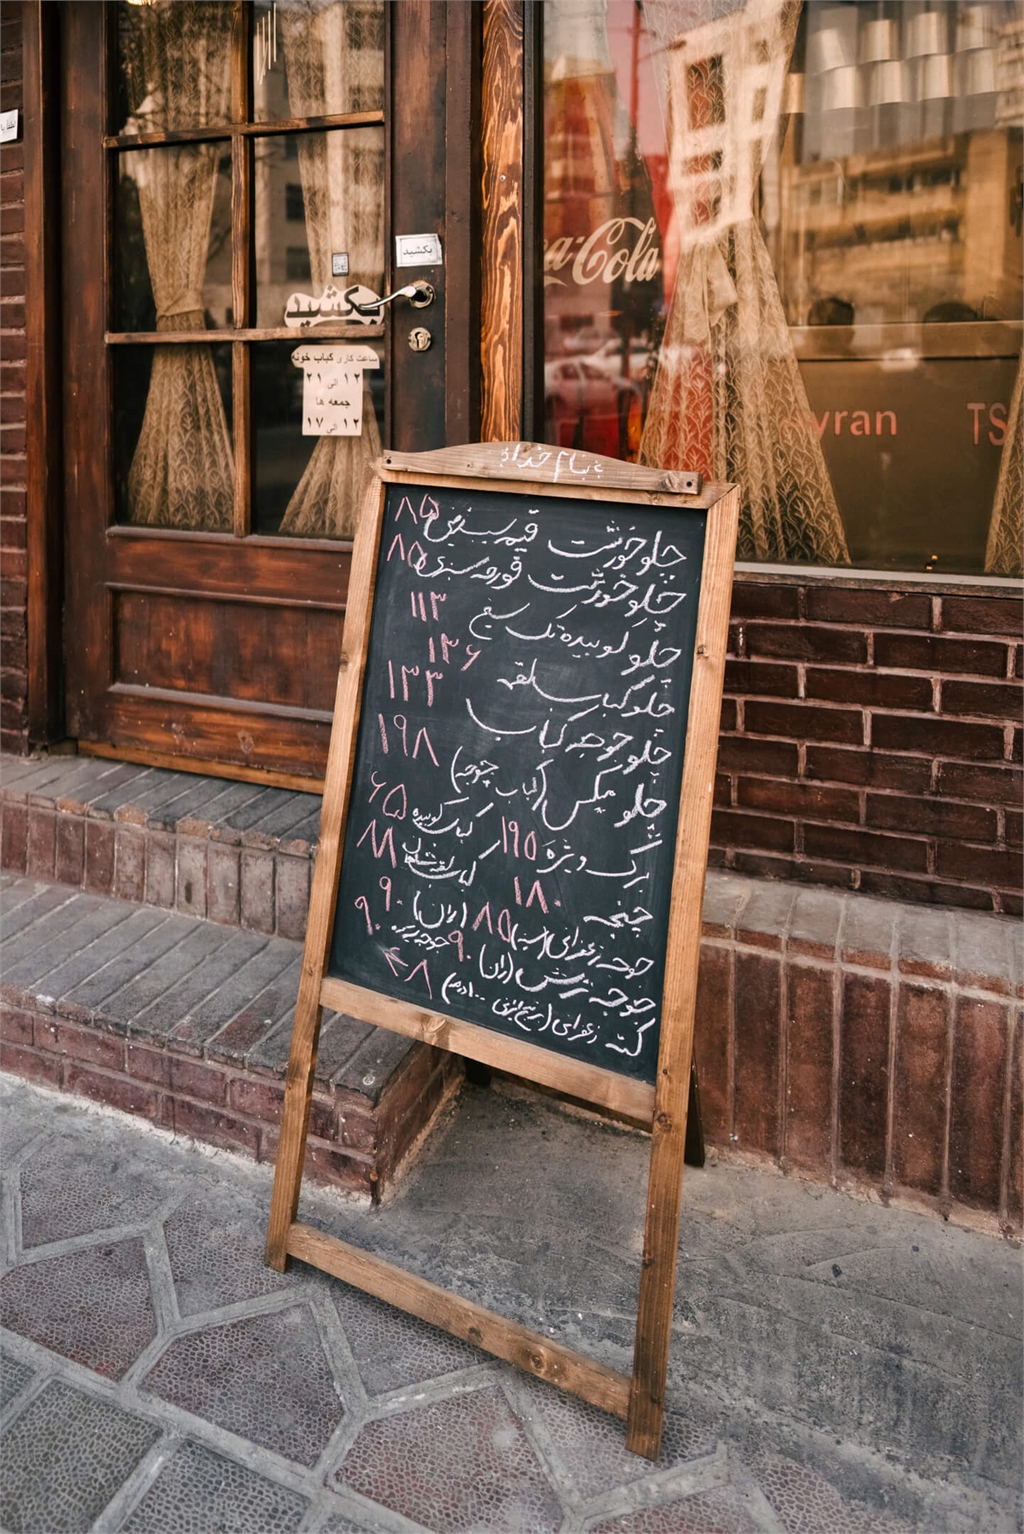 بکشید
بکشید
ساعت کاری کباب خونه
۱۲ الی ۲۱
جمعه ها
۱۲ الی ۱۷
Coca-Cola
yran
TS
بنام خدا
چلو خورشت قیمه سیب زمینی ۸۵
چلو خورشت قورمه سبزی ۸۵
چلو کوبیده تک سیخ ۱۱۳
چلو کباب سلقه ۱۳۶
چلو جوجه کباب ۱۳۳
چلو میکس (کباب جوجه) ۱۹۸
برگ ویژه ۱۹۵ کباب کوبیده ۶۵
چنجه ۱۸۰ کباب لقمه ۸۸
جوجه زعفرانی (سینه) ۸۵ (ران) ۹۰
جوجه ترش (ران) ۹۰ جوجه ۹۰
کته زعفرانی (برنج ایرانی ۱۰۰درصد) ۴۸